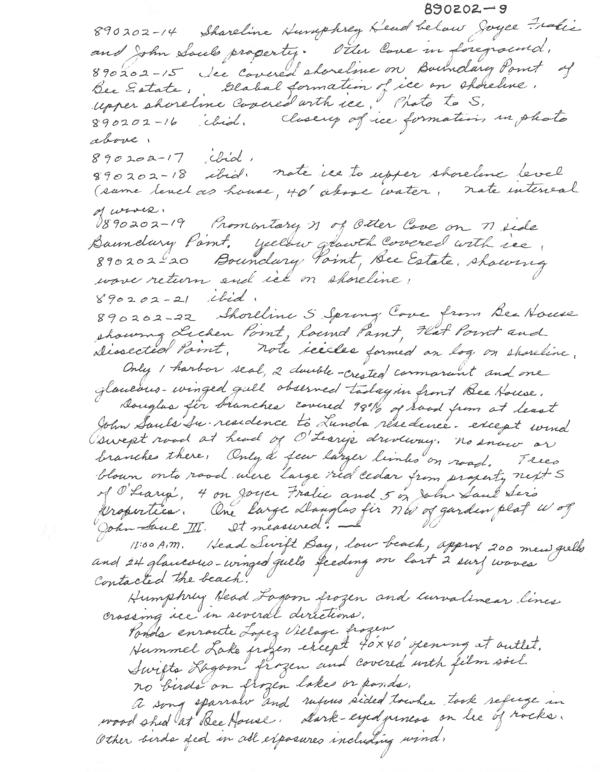 890202-9
890202-14 Shoreline Humphrey Head below Joyce Fralic
and John Sauls property. Otter Cove in foreground.
890202-15 Ice covered shoreline on Boundary Point of
Bee Estate. Global formation of ice on shoreline.
Upper shoreline covered with ice. Photo to S.
890202-16 ibid. Closeup of ice formation in photo
above.
890202-17 ibid.
890202-18 ibid. Note ice to upper shoreline level
(same level as house, 40' above water. Note interval
of waves.
890202-19 Promontary N of Otter Cove on N side
Boundary Point. Yellow growth covered with ice.
890202-20 Boundary Point, Bee Estate, showing
wave return and ice on shoreline.
890202-21 ibid.
890202-22 Shoreline S Spring Cove from Bee House
showing Lichen Point, Round Point, Flat Point and
Dissected Point. Note icicles formed on log on shoreline.
Only 1 harbor seal, 2 double-crested cormorant and one
glaucous-winged gull observed today in front Bee House.
Douglas fir branches covered 98% of road from at least
John Sauls Sr. residence to Lunda residence. except wind
swept road at head of O'Learys driveway. no snow or
branches there. Only a few larger limbs on road. Trees
blown onto road were large red cedar from property next S
of O'Leary's, 4 on Joyce Fralic and 5 on John Saul Sr's
properties. One large Douglas fir NW of garden plot W of
John Saul III. It measured: —
11:00 A.M. Head Swift Bay, low beach, approx 200 mew gulls
and 24 glaucous-winged gulls feeding on last 2 surf waves
contacted the beach.
Humphrey Head Lagoon frozen and curvalinear lines
crossing ice in several directions.
Ponds enroute Lopez Village frozen
Hummel Lake frozen except 40'x40' opening at outlet.
Swifts Lagoon frozen and covered with film soil
no birds on frozen lakes or ponds.
A song sparrow and rufous sided towhee took refuge in
wood shed at Bee House. Dark-eyed juncos on lee of rocks.
Other birds fed in all exposures including wind.